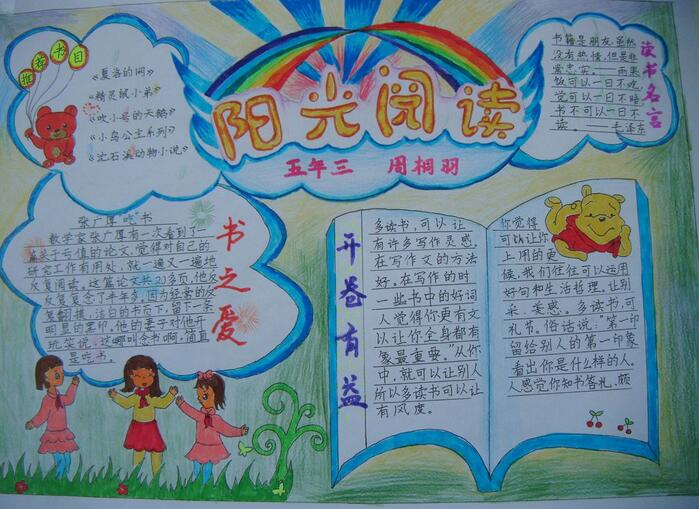 推荐书目
《夏洛的网》
《精灵鼠小弟》
《吹小号的天鹅》
《小鸟公主系列》
《沈石溪动物小说》
阳光阅读
五年三 周桐羽
读书名言
书籍是朋友,虽然
没有热情,但是非
常忠实。——雨果
饭可以一日不吃,
觉可以一日不睡,
书不可以一日不
读。——毛泽东
书之爱
张广厚“吃”书
数学家张广厚有一次看到了一
篇关于亏值的论文,觉得对自己的
研究工作有用处,就一遍又一遍地
反复阅读。这篇论文共20多页,他反
反复复念了半年多,因为经常的反
复翻摸,洁白的书页下,留下一条
明显的黑印,他的妻子对他开
玩笑说:这哪叫念书啊,简直
是吃书。
开卷有益
多读书,可以让
有许多写作灵感。
在写作文的方法
好。在写作的时
一些书中的好词
人觉得你更有文
以让你全身都有
象最重要。”从你
中,就可以让别人
所以多读书可以让
有风度。
你觉得
可以让你
上用的更
候,我们往往可以运用
好句和生活哲理,让别
采、美感。多读书,可
礼节。俗话说:“第一印
留给别人的第一印象
看出你是什么样的人。
人感觉你知书答礼,颇